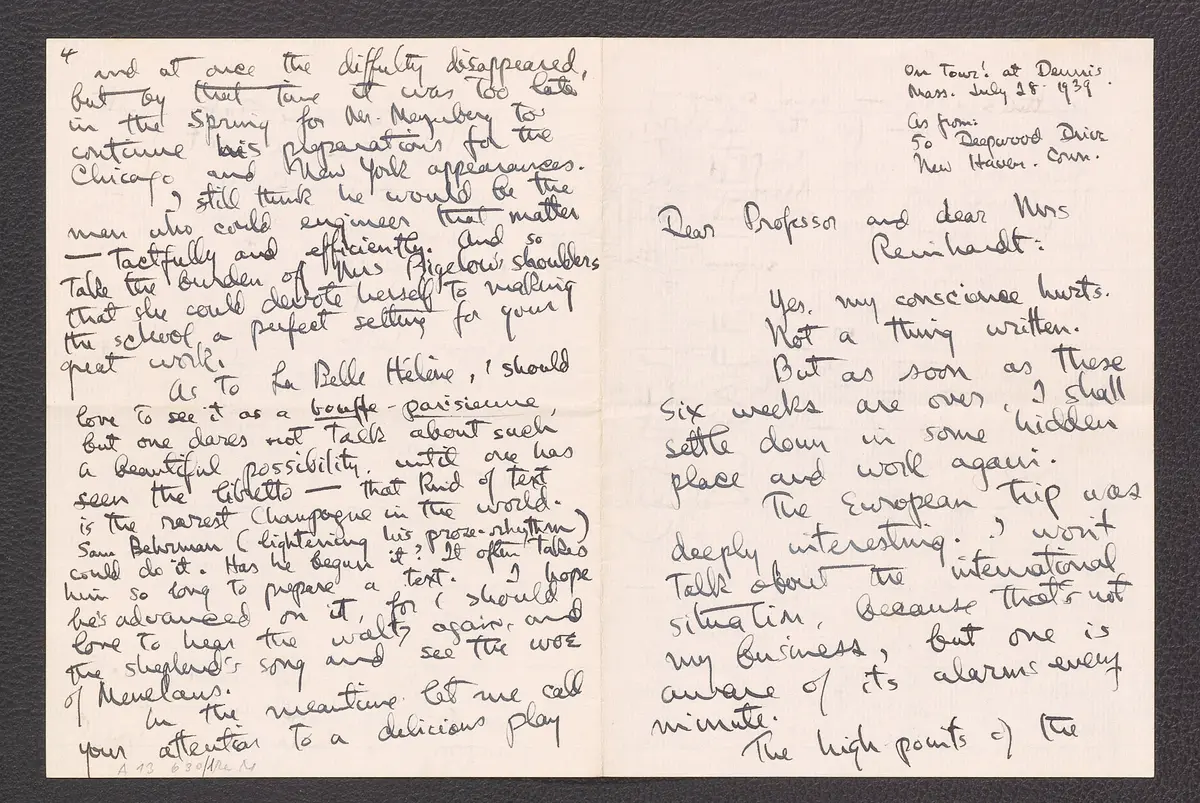 4
and at once the diffulty disappeared,
but by that time it was too late
in the Spring for Mr. Meyenberg to
continue his preparations for the
Chicago and New York appearances.
I still think he would be the
man who could engineer that matter
— tactfully and efficiently. And so
take the burden off Mrs Bigelow's shoulders
that she could devote herself to making
the school a perfect setting for your
great work.
As to La Belle Hélène, I should
love to see it as a bouffe-parisienne,
but one dares not talk about such
a beautiful possibility, until one has
seen the libretto — that kind of text
is the rarest Champagne in the world.
Sam Behrman (lightening his prose-rhythm)
could do it. Has he begun it? It often takes
him so long to prepare a text. I hope
he's advanced on it, for I should
love to hear the waltz again, and
the shepherd's song and see the woe
of Menelaus.
In the meantime let me call
your attention to a delicious play
A 13 630
On Tour: at Dennis
Mass. July 28. 1939.
As from:
50 Deepwood Drive
New Haven. Conn.
Dear Professor and dear Mrs
Reinhardt:
Yes, my conscience hurts.
Not a thing written.
But as soon as these
six weeks are over, I shall
settle down in some hidden
place and work again.
The European trip was
deeply interesting. I won't
talk about the international
situation, because that's not
my business, but one is
aware of its alarms every
minute.
The high points of the